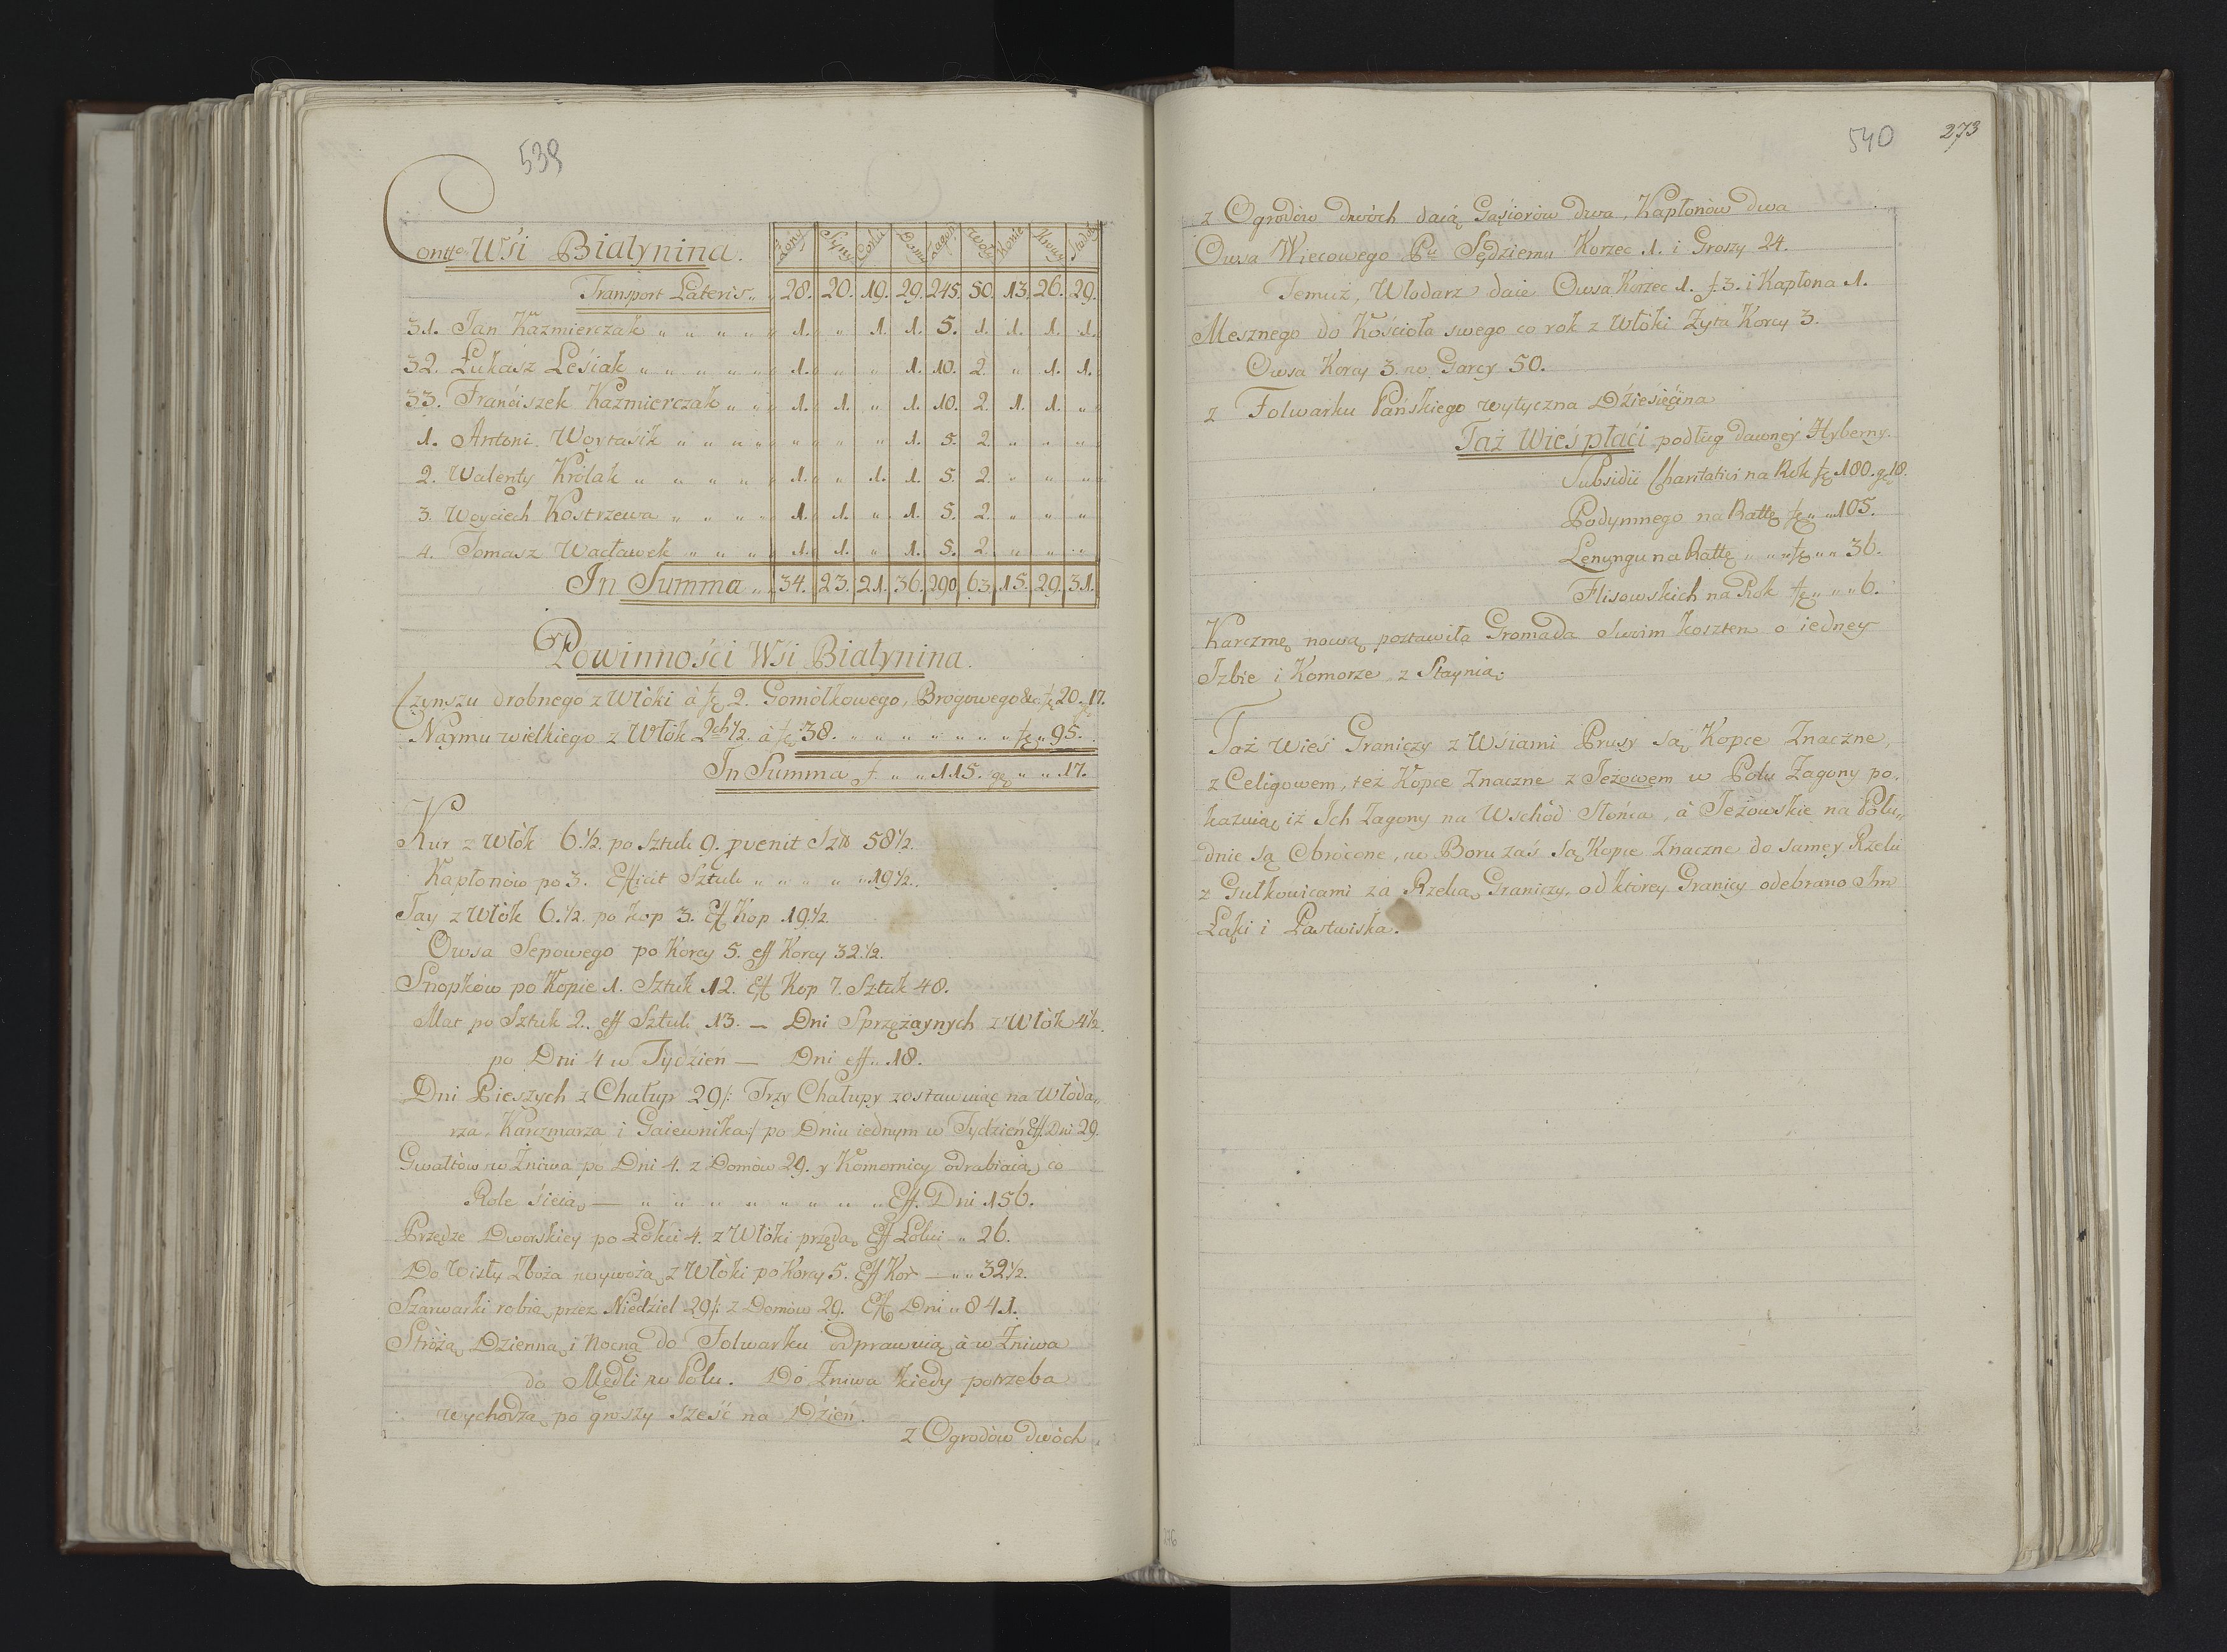 539
Contto Wsi Białynina.
Żony Syny Corki Domy Zagony Woły Konie Krowy Jałowiz
Transport Lateris „ 28. 20. 19. 29. 245. 50. 13. 26. 29.
31. Jan Kazmierczak „ „ „ „ „ 1. „ 1. 1. 5. 1. 1. 1. 1.
32. Łukasz Leśiak „ „ „ „ „ 1. „ „ 1. 10. 2. „ 1. 1.
33. Franćiszek Kazmierczak „ „ 1. 1. „ 1. 10. 2. 1. 1. „
1. Antoni Woytasik „ „ „ „ „ „ „ 1. 5. 2. „ „ „
2. Walenty Krolak „ „ „ „ „ 1. „ 1. 1. 5. 2. „ „ „
3. Woyciech Kostrzewa „ „ „ „ 1. 1. „ 1. 5. 2. „ „ „
4. Tomasz Wacławek „ „ „ 1. 1. „ 1. 5. 2. „ „ „
In Summa „ 34. 23. 21. 36. 290. 63. 15. 29. 31.
Powinnosći Wsi Białynina.
Czynszu drobnego z Włòki à fł 2. Gomòłkowego, Brogowego &c. fł 20. 17.
Naymu wielkiego z Włòk 2ch ½ à fł 38. „ „ „ „ „ „ „ fł „ 95.
In Summa f. „ „ 115. gr „ „ 17.
Kur z Włòk 6.½. po Sztuk 9. pvenit Sztk 58½.
Kapłonòw po 3. Efficit Sztuk „ „ „ „ „ 19½.
Jay z Włòk 6.½. po kop 3. Eff Kop 19.½.
Owsa Sepowego po Korcy 5. eff Korcy 32.½.
Snopkòw po Kopie 1. Sztuk 12. Eff Kop 7. Sztuk 48.
Mat po Sztuk 2. eff Sztuk 13. — Dni Sprzężaynych z Włòk 4½.
po Dni 4 w Tydzień — Dni eff. 18.
Dni Pieszych z Chałup 29/: Trzy Chałupy zostawuiąc na Włòda„
rza, Karczmarza i Gaiewnika:/ po Dniu iednym w Tydzień Eff. Dni 29.
Gwałtòw w Żniwa po Dni 4. z Domòw 29. y Komornicy odrabiaią, co
Role śieią — „ „ „ „ „ „ „ „ Eff. Dni 156.
Przędze Dworskiey po Łokci 4. z Włòki przędą Eff Łokci „ 26.
Do Wisły Zboża wywożą z Włòki po Korcy 5. Eff Kor — „ „ 32½.
Szarwarki robią przez Niedziel 29/: z Domòw 29. Eff Dni „ 841.
Stròżą Dzienną i Nocną do Folwarku odprawuią à w Żniwa
do Mędli w Polu. Do Żniwa kiedy potrzeba
wychodzą po groszy sześć na Dzień.
z Ogrodòw dwòch
540 273
z Ogrodòw dwòch daią Gąsiorów dwa, Kapłonòw dwa
Owsa Wiecowego Pu Sędziemu Korzec 1. i Groszy 24.
Temuż, Włodarz daie Owsa Korzec 1. f 3. i Kapłona 1.
Mesznego do Kościoła swego co rok z Włòki Żyta Korcy 3.
Owsa Korcy 3. w. Garcy 50.
z Folwarku Pańskiego wytyczna Dźiesięćina
Taż Wieś płaći podług dawney Hyberny.
Subsidii Charitativi na Rok fł 180. gr 18.
Podymnego na Rattę fł „ „ 105.
Lenungu na Rattę „ „ „ fł „ „ 36.
Flisowskich na Rok fł „ „ „ 6.
Karczmę nową poztawiła Gromada Swoim kosztem o iedney
Izbie i Komorze z Staynią.
Taż Wieś Graniczy z Wśiami Prusy są Kopce Znaczne,
z Celigowem, też Kopce Znaczne z Jeżowem w Polu Zagony po.
kazuią, iż Ich Zagony na Wschód Słońca, à Jeżowskie na Połu„
dnie są Obròcone, w Boru zaś są Kopce Znaczne do samey Rzeki
z Gułkowicami za Rzeką Graniczy, od ktòrey Granicy odebrano Im
Łąki i Pastwiska.
276